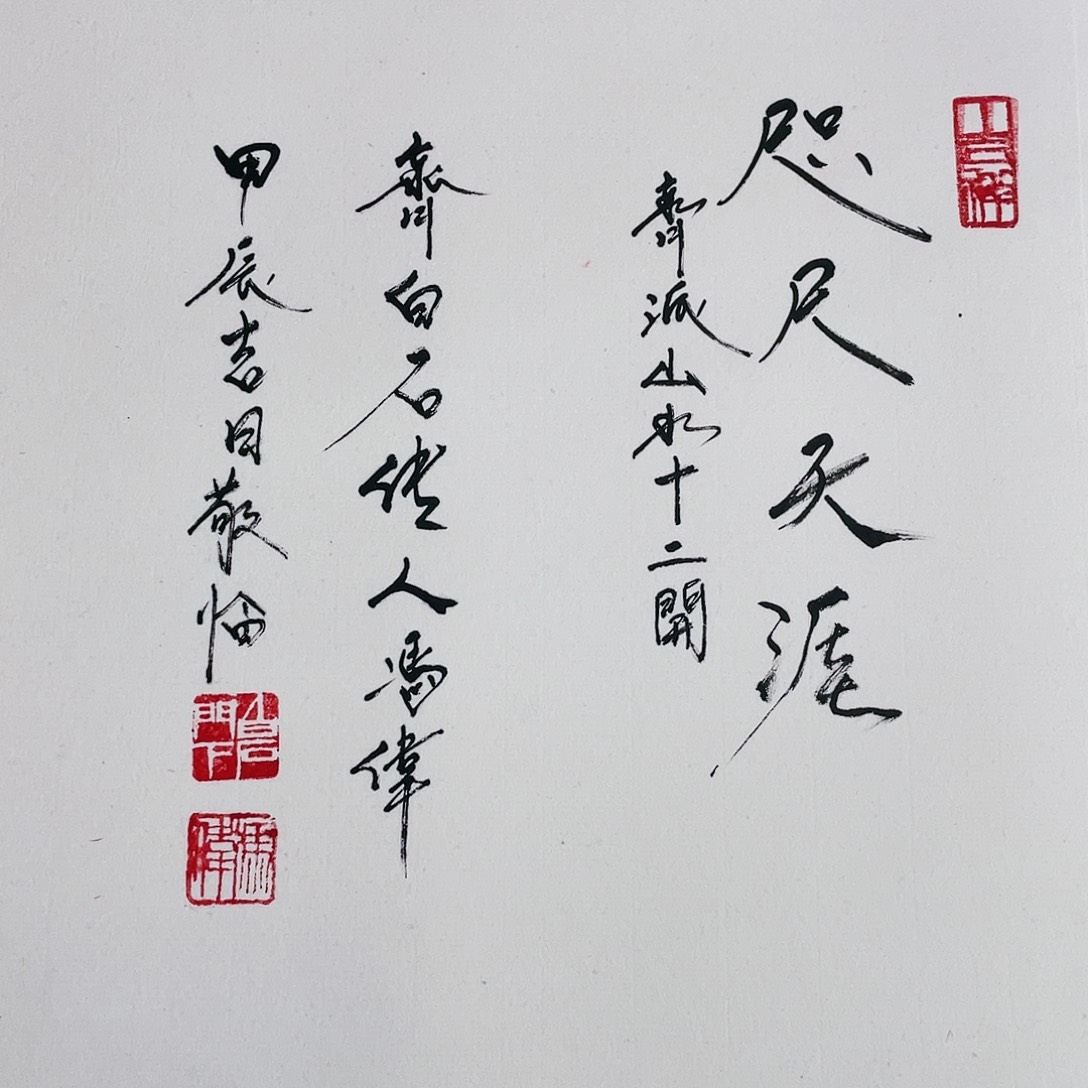 咫尺天涯
齊派山水十二開
齊白石传人馮偉
甲辰吉日敬临
馮偉